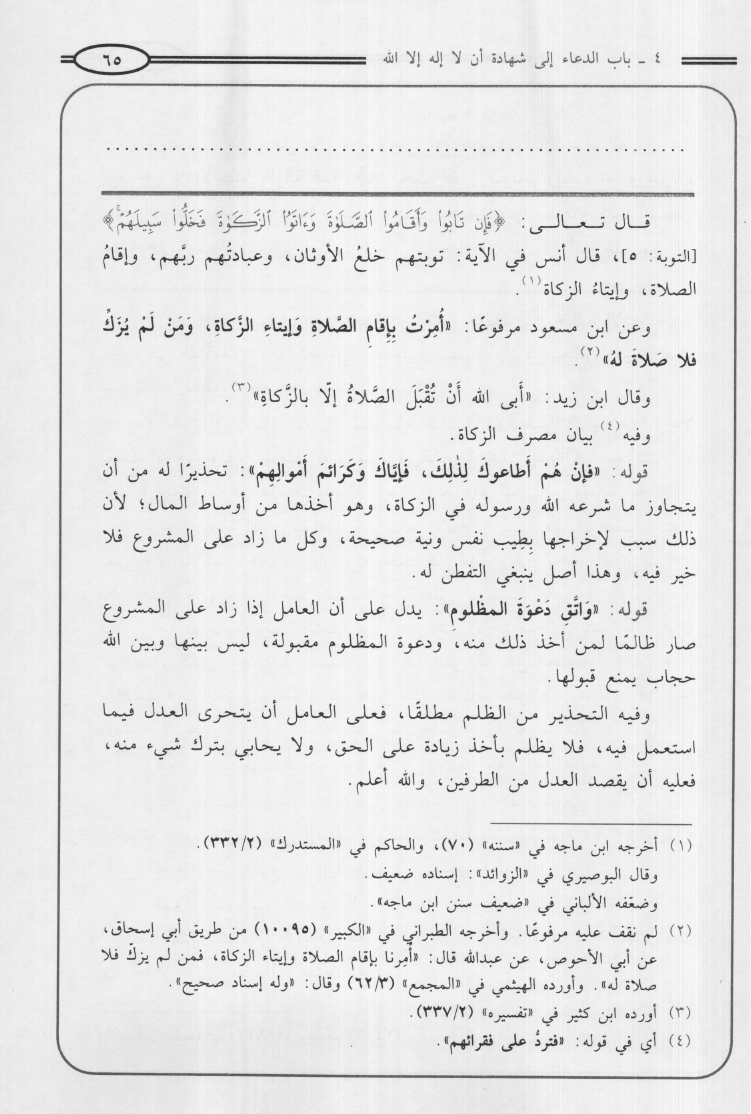 ٤ ـ باب الدعاء إلى شهادة أن لا إله إلا الله
٦٥
................................................................
قـال تـعـالـى: ﴿فَإِن تَابُوا۟ وَأَقَامُوا۟ ٱلصَّلَوٰةَ وَءَاتَوُا۟ ٱلزَّكَوٰةَ فَخَلُّوا۟ سَبِيلَهُمْۚ﴾
[التوبة: ٥]، قال أنس في الآية: توبتهم خلعُ الأوثان، وعبادتُهم ربَّهم، وإقامُ
الصلاة، وإيتاءُ الزكاة(١).
وعن ابن مسعود مرفوعًا: «أُمِرْتُ بِإقامِ الصَّلاةِ وَإيتاءِ الزَّكاةِ، وَمَنْ لَمْ يُزَكِّ
فلا صَلاةَ لهُ»(٢).
وقال ابن زيد: «أَبى الله أَنْ تُقْبَلَ الصَّلاةُ إلّا بالزَّكاةِ»(٣).
وفيه(٤) بيان مصرف الزكاة.
قوله: «فإنْ هُمْ أَطاعوكَ لِذٰلِكَ، فَإيَّاكَ وَكَرائمَ أَمْوالِهِمْ»: تحذيرًا له من أن
يتجاوز ما شرعه الله ورسوله في الزكاة، وهو أخذها من أوساط المال؛ لأن
ذلك سبب لإخراجها بِطِيب نفس ونية صحيحة، وكل ما زاد على المشروع فلا
خير فيه، وهذا أصل ينبغي التفطن له.
قوله: «وَاتَّقِ دَعْوَةَ المظْلومِ»: يدل على أن العامل إذا زاد على المشروع
صار ظالمًا لمن أخذ ذلك منه، ودعوة المظلوم مقبولة، ليس بينها وبين الله
حجاب يمنع قبولها.
وفيه التحذير من الظلم مطلقًا، فعلى العامل أن يتحرى العدل فيما
استعمل فيه، فلا يظلم بأخذ زيادة على الحق، ولا يحابي بترك شيء منه،
فعليه أن يقصد العدل من الطرفين، والله أعلم.
(١) أخرجه ابن ماجه في «سننه» (٧٠)، والحاكم في «المستدرك» (٣٣٢/٢).
وقال البوصيري في «الزوائد»: إسناده ضعيف.
وضعّفه الألباني في «ضعيف سنن ابن ماجه».
(٢) لم نقف عليه مرفوعًا. وأخرجه الطبراني في «الكبير» (١٠٠٩٥) من طريق أبي إسحاق،
عن أبي الأحوص، عن عبدالله قال: «أُمِرنا بإقام الصلاة وإيتاء الزكاة، فمن لم يزكّ فلا
صلاة له». وأورده الهيثمي في «المجمع» (٦٢/٣) وقال: «وله إسناد صحيح».
(٣) أورده ابن كثير في «تفسيره» (٣٣٧/٢).
(٤) أي في قوله: «فتردُّ على فقرائهم».